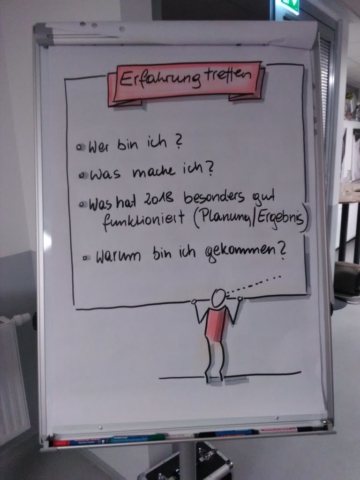 Erfahrung treffen
Wer bin ich?
Was mache ich?
Was hat 2018 besonders gut
funktioniert (Planung/Ergebnis)
Warum bin ich gekommen?